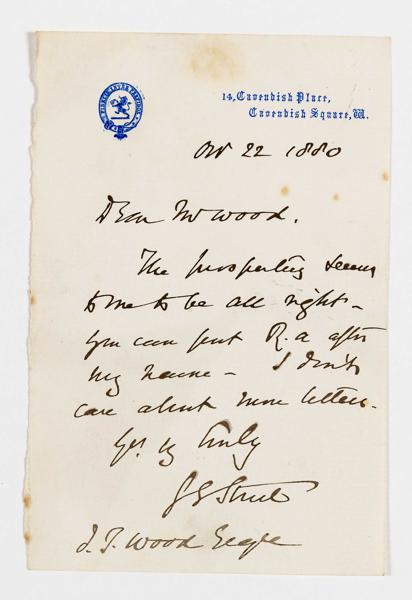 14, Cavendish Place,
Cavendish Square, W.
22 1880
Dear Mr Wood.
The prospectus seems
to me to be all right -
you can put R.a after
my name - I don't
care about more letters.
Yrs vy truly
G E Street
J. T. Wood Esqre